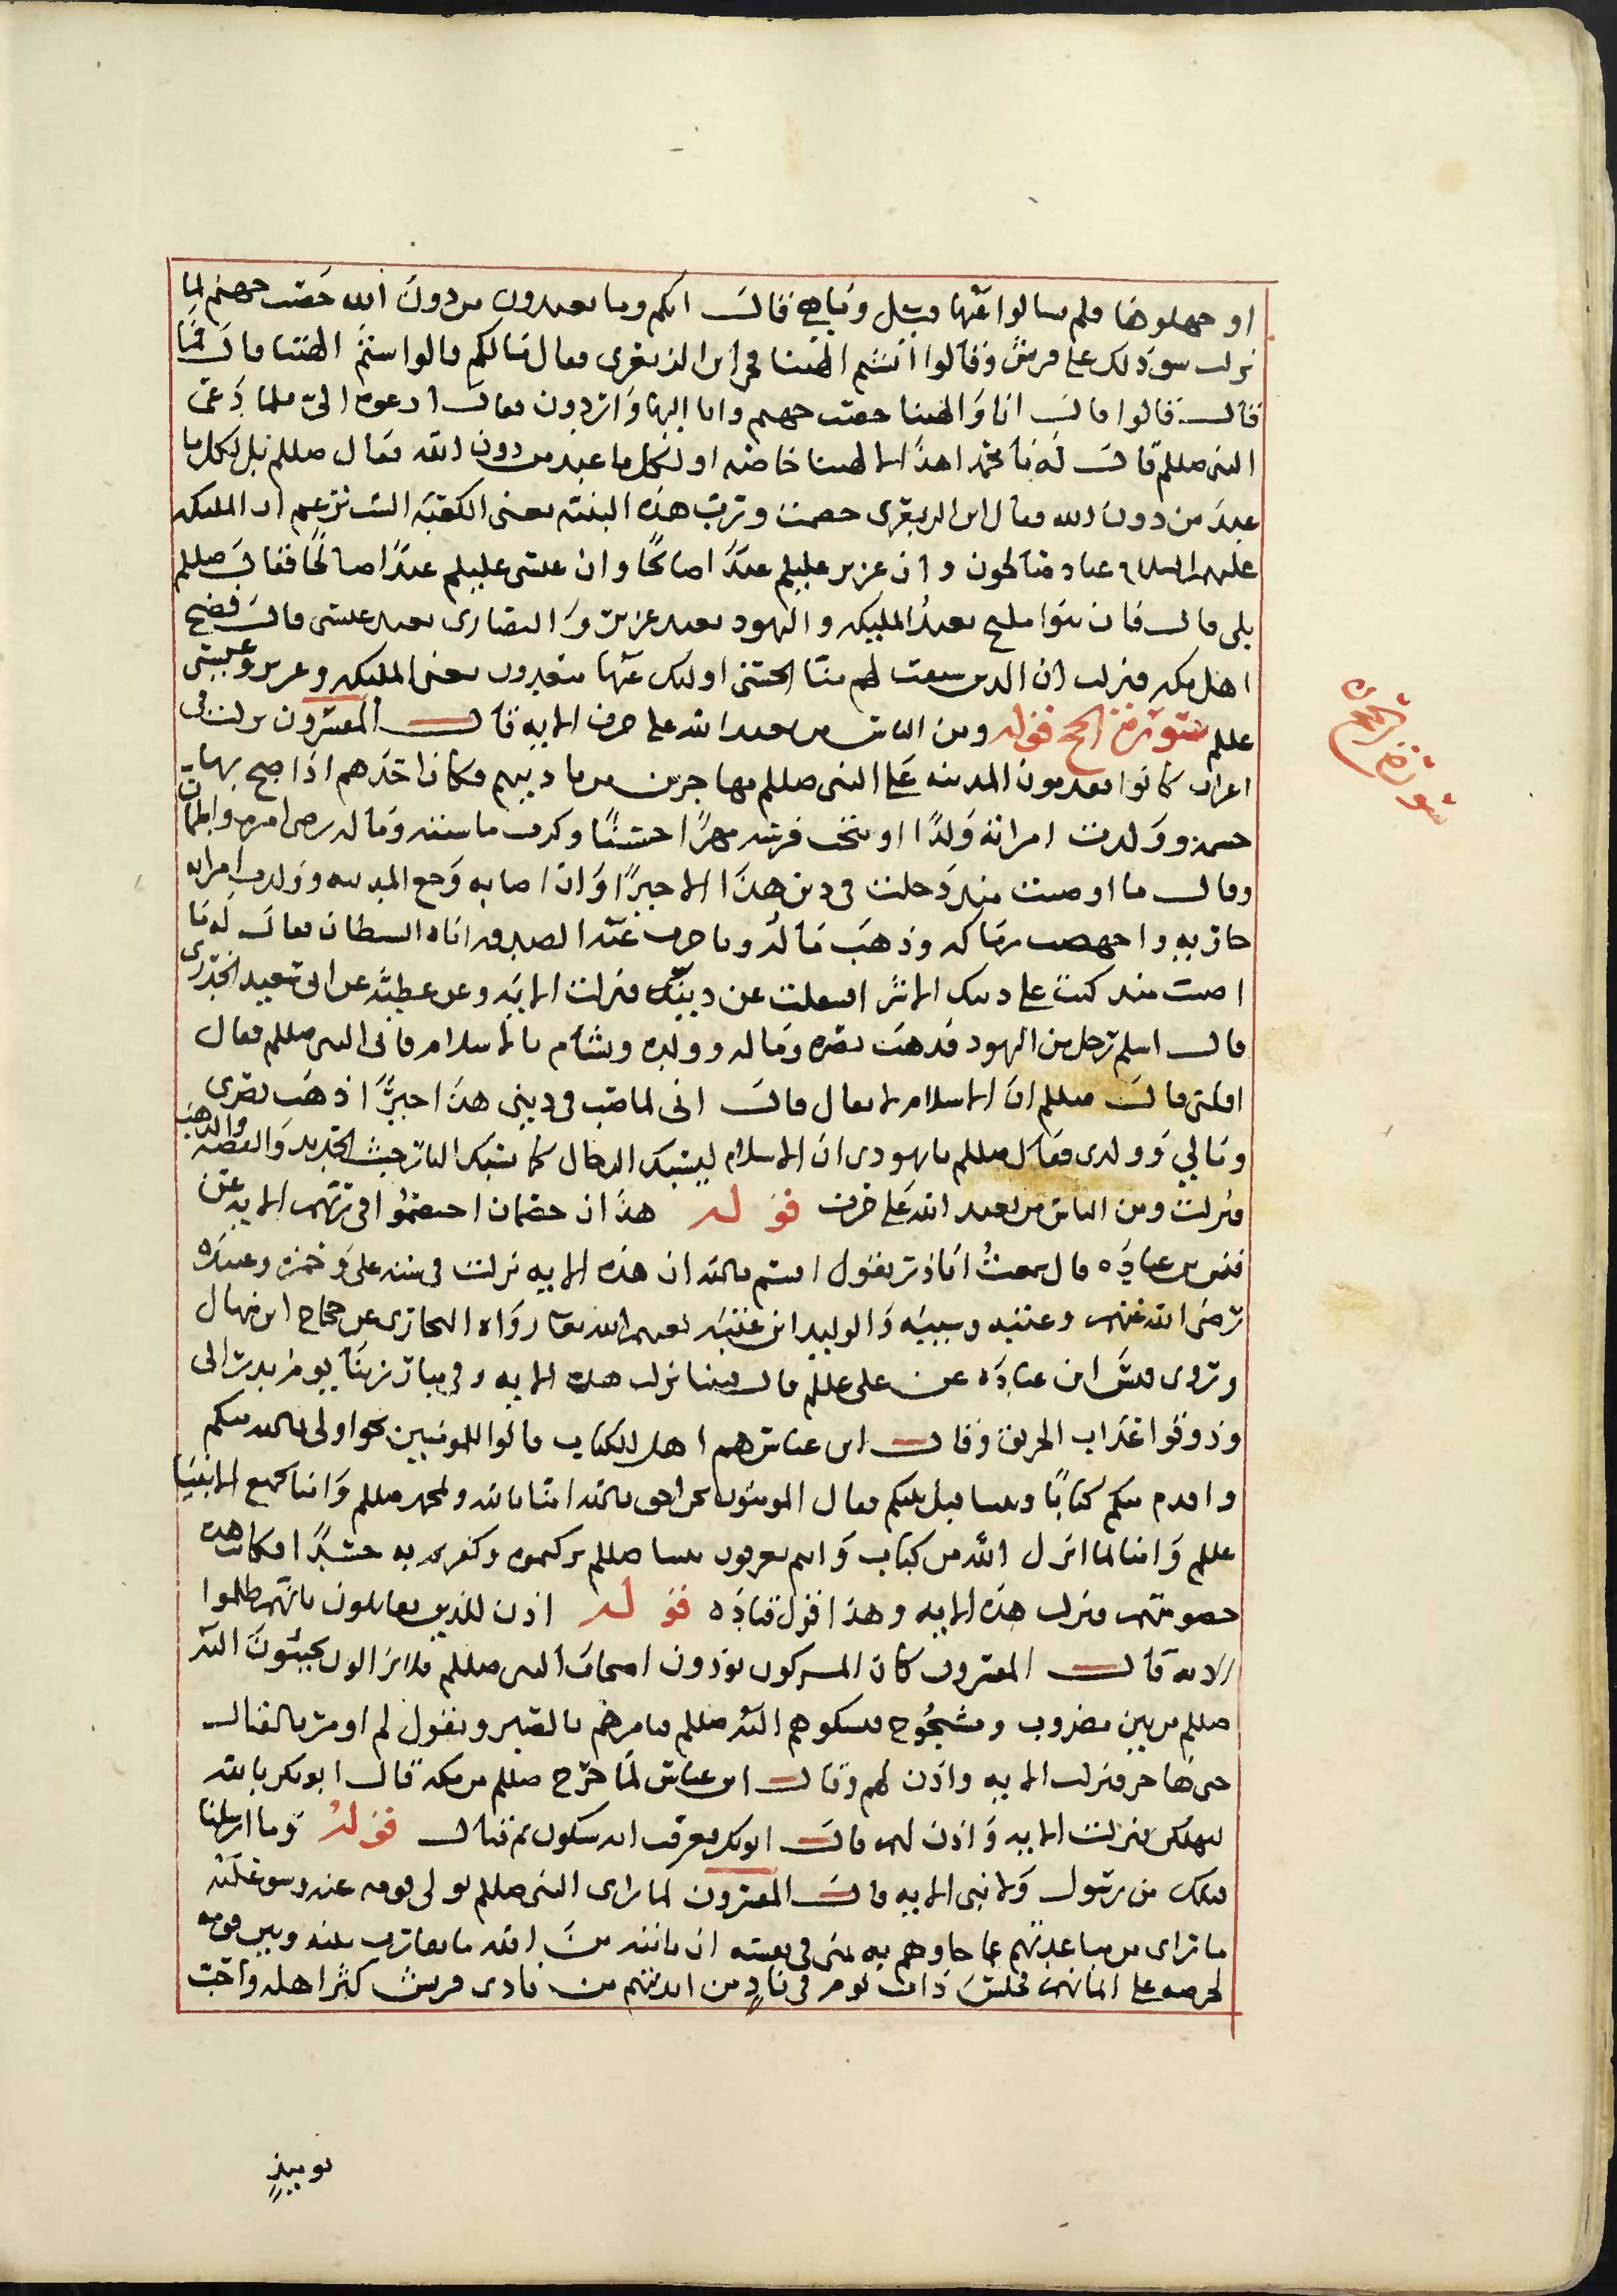 او جهلوها فلم يسالوا عنها قيل وما هي قال انكم وما تعبدون من دون الله حصب جهنم لما
نزلت شق ذلك على قريش وقالوا انشتم الهتنا فجا ابن الزبعرى فقال ما لكم قالوا شتم الهتنا قال فما
قال قالوا قال انا والهتنا حصب جهنم وانا اليها واردون فقال ادعوه الي فلما دعي
النبي صللم قال له يا محمد اهذا لالهتنا خاصه او لكل ما عبد من دون الله فقال صللم بل لكل ما
عبد من دون الله فقال ابن الزبعرى خصمت ورب هذه البنية يعني الكعبة الست تزعم ان المليكه
عليهم السلام عباد صالحون وان عزير عليلم عبدا صالحا وان عيسى عليلم عبدا صالحا فقال صللم
بلى قال فان بنوا مليح يعبدوا المليكه واليهود يعبد عزير والنصارى يعبد عيسى قال فضج
اهل مكه فنزلت ان الذين سبقت لهم منا الحسنى اوليك عنها مبعدون يعني المليكه وعزير وعيسى
عللم سورة الحج قوله ومن الناس من يعبد الله على حرف الايه قال المفسرون نزلت في
اعراب كانوا يقدمون المدينه على النبي صللم مهاجرين من باديتهم فكان احدهم اذا صح بها
جسمه وولدت امراته ولدا او نتجت فرسه مهرا حسنا وكثرت ماشيته وماله رضي امره واطمان
وقال ما اصبت منذ دخلت في دين هذا الا خيرا وان اصابه وجع المدينه وولدت امراته
جاريه واجهضت رماكه وذهب ماله وتاخرت عنه الصدقه اتاه الشيطان فقال له ما
اصبت منذ كنت على دينك الا شر افينقلب عن دينه فنزلت الايه وعن عطيه عن ابي سعيد الخدري
قال اسلم رجل من اليهود فذهب بصره وماله وولده وتشاءم بالاسلام فاتى النبي صللم فقال
اقلني قال صللم ان الاسلام لا يقال قال اني لم اصب في ديني هذا خيرا اذهب بصري
ومالي وولدي فقال صللم يا يهودي ان الاسلام ليسبك الرجال كما تسبك النار خبث الحديد والفضه والذهب
فنزلت ومن الناس من يعبد الله على حرف قوله هذان خصمان اختصموا في ربهم الايه عن
قيس بن عباده قال سمعت اباذر يقول اقسم بالله ان هذه الايه نزلت في سته علي وحمزه وعبيده
رضي الله عنهم وعتبه وشيبه والوليد ابن عتبه لعنهم الله تعا رواه البخاري عن حجاج ابن منهال
وروى قيس ابن عباده عن علي عللم قال فينا نزلت هذه الايه وفي مبارزتنا يوم بدر الى
وذوقوا عذاب الحريق وقال ابن عباس هم اهل الكتاب قالوا للمومنين نحن اولى بالله منكم
واقدم منكم كتابا ونبينا قبل نبيكم فقال المومنون نحن احق بالله امنا بالله وبمحمد صللم وامنا بجميع الانبيا
عللم وامنا بما انزل الله من كتاب وانتم تعرفون نبينا صللم تركتموه وكفرتم به حسدا فكانت هذه
خصومتهم فنزلت هذه الايه وهذا قول قتاده قوله اذن للذين يقاتلون بانهم ظلموا
الايه قال المفسرون كان المشركون يوذون اصحاب النبي صللم فلا يزالون يجيئون الى
صللم من بين مضروب ومشجوج فيشكوهم اليه صللم فيامرهم بالصبر ويقول لم اومر بالقتال
حتى هاجر فنزلت الايه واذن لهم وقال ابن عباس لما خرج صللم من مكه قال ابو بكر بالله
ليهلكن فنزلت الايه واذن لهم قال ابو بكر فعرفت انه سيكون ثم قتال قوله وما ارسلنا
قبلك من رسول ولا نبي الايه قال المفسرون لما راى النبي صللم تولى قومه عنه وشق عليه
ما راى من مباعدتهم عما جاوهم به تمنى في نفسه ان ياتيه من الله ما يقارب بينه وبين قومه
لحرصه على ايمانهم فجلس ذات يوم في ناد من انديتهم من نادى قريش كثر اهله واحب
سورة الحج
يوميذ